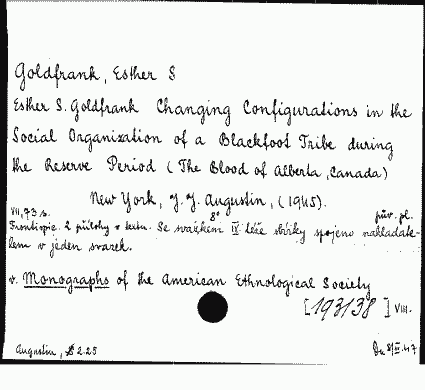 Goldfrank, Esther S
Esther S. Goldfrank Changing Configurations in the
Social Organization of a Blackfoot Tribe during
the Reserve Period (The Blood of Alberta, Canada)
New York, J. J. Augustin, (1945).
VII, 73 s. 8° pův. pl.
Frontispic. 2 přílohy v textu. Se svazkem IV téže sbírky spojeno nakladate-
lem v jeden svazek.
v. Monographs of the American Ethnological Society
[193138] VIII.
Augustin, $ 2.25
Du 8/II 47